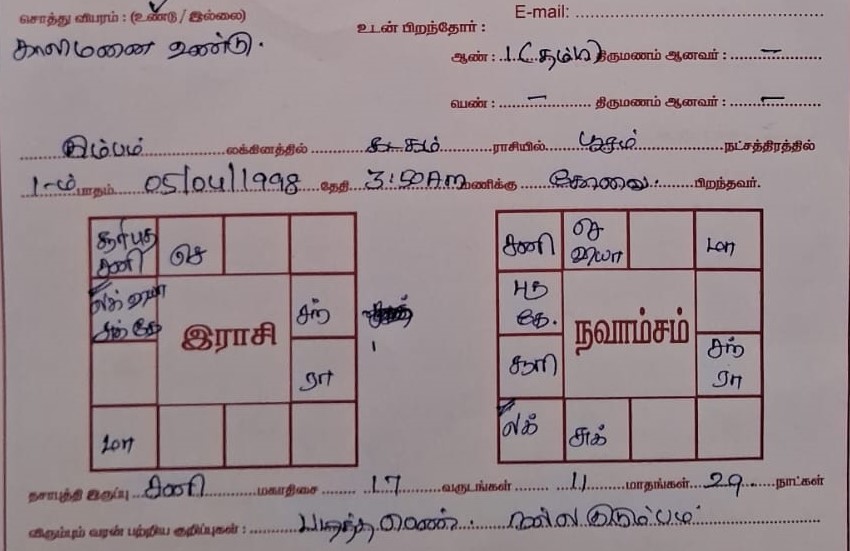 சொத்து விபரம் : (உண்டு / இல்லை)
E-mail: ........................
காலிமனை உண்டு.
உடன் பிறந்தோர் :
ஆண் : 1 (தம்பி) திருமணம் ஆனவர் : –
பெண் : – திருமணம் ஆனவர் : –
கும்பம் லக்கினத்தில் கடகம் ராசியில் பூசம் நட்சத்திரத்தில்
1-ம் பாதம் 05/04/1998 தேதி 3:50 Am மணிக்கு கோவை பிறந்தவர்.
சூர் புத
சனி
செ
லக் வியா
சுக் கே
இராசி
சந்
ரா
மா
சனி
செ
வியா
மா
புத
கே.
நவாம்சம்
சூரி
சந்
ரா
லக்
சுக்
தசாபுத்தி இருப்பு சனி மகாதிசை 17 வருடங்கள் 11 மாதங்கள் 29 நாட்கள்
விரும்பும் வரன் பற்றிய குறிப்புகள் : படித்த பெண். நல்ல குடும்பம்